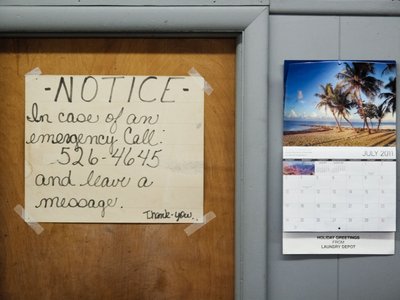 - NOTICE -
In case of an
emergency Call:
526-4645
and leave a
message.
Thank-you..
JULY 2011
HOLIDAY GREETINGS
FROM
LAUNDRY DEPOT